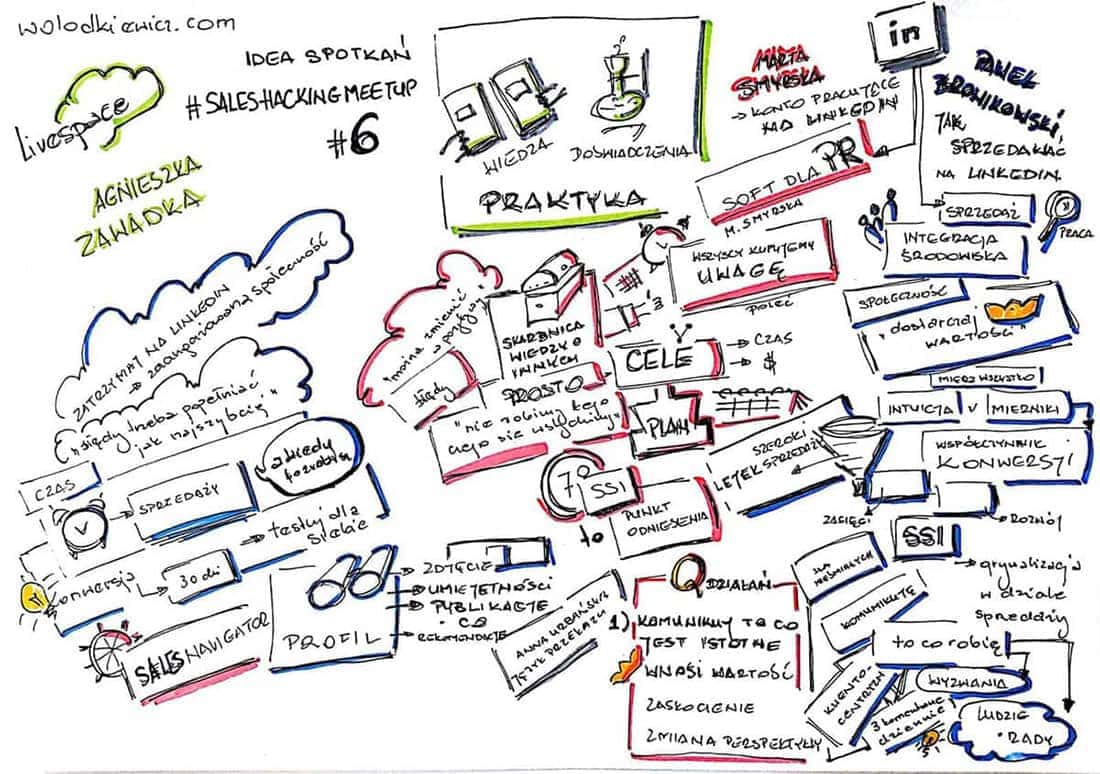 wolodkiewicz.com
Livespace
AGNIESZKA
ZAWADKA
IDEA SPOTKAŃ
#SALESHACKINGMEETUP
#6
WIEDZA
DOŚWIADCZENIA
PRAKTYKA
MARTA
SMYRSKA
→ KONTO PRACUJĄCE
NA LINKEDIN
in
PAWEŁ
BRONIKOWSKI
JAK
SPRZEDAWAĆ
NA LINKEDIN
SOFT DLA PR
M. SMYRSKA
WSZYSCY KUPUJEMY
UWAGĘ
SPRZEDAŻ
PRACA
INTEGRACJA
ŚRODOWISKA
SPOŁECZNOŚĆ
"dostarczaj
WARTOŚCI"
INTUICJA V MIERNIKI
WSPÓŁCZYNNIK
KONWERSJI
ZASIĘGI
ROZWÓJ
SSI
→ grywalizacja
w dziale
sprzedaży
ZATRZYMAJ NA LINKEDIN
→ zaangażowana społeczność
"błędy trzeba popełniać
jak najszybciej"
"można zmienić
w pozytywy"
błędy
SKARBNICA
WIEDZY O
INNYCH
PROSTO
"nie robimy tego
czego się wstydzimy"
CELE
→ CZAS
→ $
PLAN
SZEROKI
LEJEK SPRZEDAŻY
70 SSI
to
PUNKT
ODNIESIENIA
CZAS
SPRZEDAŻY
→ testuj dla
siebie
Konwersja
30 dni
SALES NAVIGATOR
PROFIL
→ ZDJĘCIE
→ UMIEJĘTNOŚCI
→ PUBLIKACJE
• CO
→ REKOMENDACJE
ANNA URBAŃSKA
JĘZYK PRZEKAZU
DZIAŁAŃ
1) KOMUNIKUJ TO CO
JEST ISTOTNE
WNOSI WARTOŚĆ
ZASKOCZENIE
ZMIANA PERSPEKTYWY
KOMUNIKUJĘ
to co robię
WYZWANIA
KLIENTO-
CENTRYZM
3 komentarze
dziennie
LUDZIE
• RADY